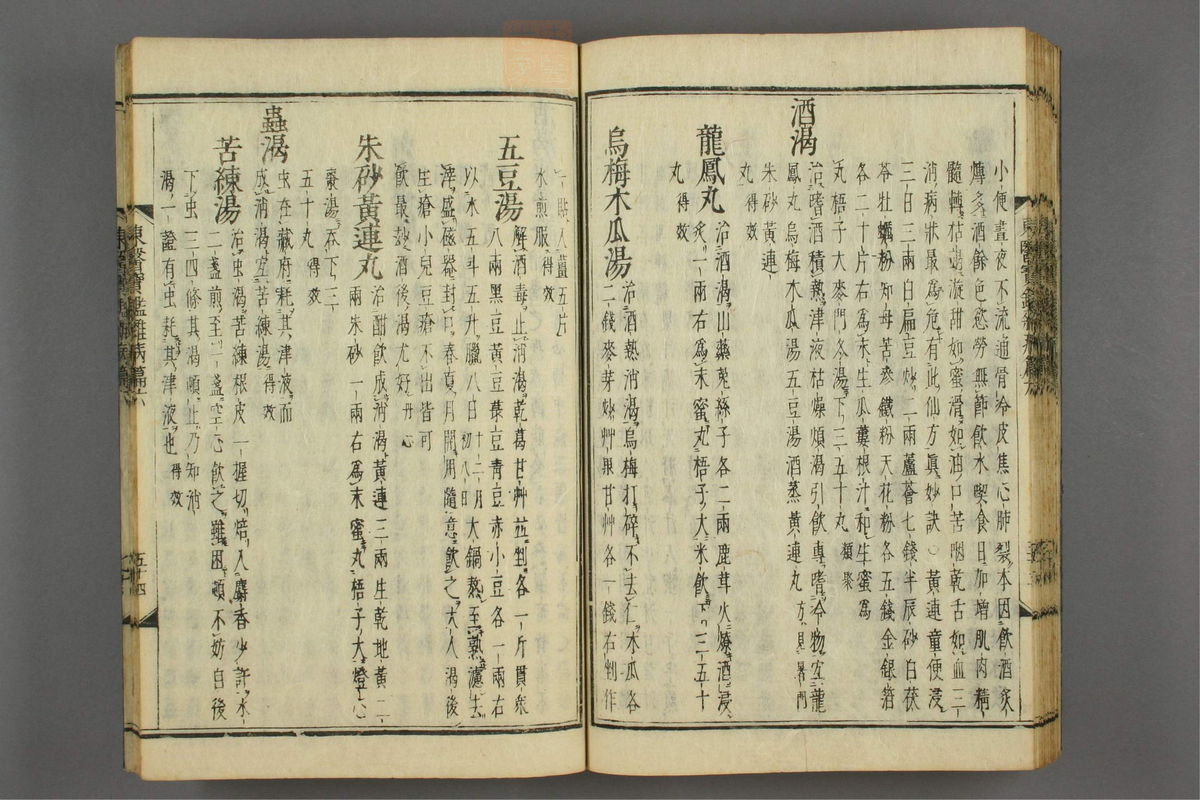 小便晝夜不流通骨冷皮焦心肺裂本因飮酒炙
煿多酒餘色慾勞無節飮水喫食日加增肌肉精
髓轉枯 漩甜如蜜滑如油口苦咽乾舌如血三
消病狀最爲危有此仙方眞妙訣○黃連童便浸
三日三兩白扁豆炒二兩蘆薈七錢半辰砂白茯
苓牡蠣粉知母苦參鐵粉天花粉各五錢金銀箔
各二十片右爲末生瓜蔞根汁和生蜜爲
丸梧子大麥門冬湯下三五十丸 類聚
酒渴
治嗜酒積熱津液枯燥煩渴引飮專嗜冷物宜龍
鳳丸烏梅木瓜湯五豆湯酒蒸黃連丸 方見暑門
朱砂黃連
丸 得效
龍鳳丸 治酒渴山藥兎絲子各二兩鹿茸火燎酒浸
炙一兩右爲末蜜丸梧子大米飮下三五十
丸 得效
烏梅木瓜湯 治酒熱消渴烏梅打碎不去仁木瓜各
二錢麥芽炒艸果甘艸各一錢右剉作
一貼入薑五片
水煎服 得效
五豆湯 解酒毒止消渴乾葛甘艸並剉各一斤貫衆
八兩黑豆黃豆菉豆靑豆赤小豆各一兩右
以水五斗五升臘八日 十二月初八日 大鍋熬至熟濾去
滓盛磁器封口春夏月開用隨意飮之大人渴後
生瘡小兒豆瘡不出皆可
飮最妙酒後渴尤好 丹心
朱砂黃連丸 治酣飮成消渴黃連三兩生乾地黃二
兩朱砂一兩右爲末蜜丸梧子大燈心
棗湯呑下三
五十丸 得效
蟲渴
虫在藏府耗其津液而
成消渴宜苦練湯 得效
苦練湯 治虫渴苦練根皮一握切焙入麝香少許水
二盞煎至一盞空心飮之雖困頓不妨自後
下虫三四條其渴頓止乃知消
渴一證有虫耗其津液也 得效
東醫寶鑑雜病篇六
五十四